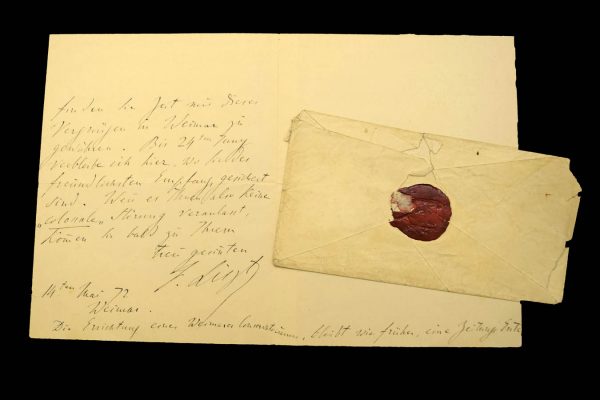 finden Sie Zeit mir dieses
Vergnügen in Weimar zu
gewähren. Bis 24ten Juny
verbleibe ich hier, wo Sie des
freundlichsten Empfang gesichert
sind. Wenn es Ihnen also keine
"colossale" Störung veranlasst,
kommen Sie bald zu Ihrem
treu gesinnten
F. Liszt
14ten Mai 72
Weimar.
Die Errichtung eines Weimarer Conservatoriums, bleibt wie früher, eine Zeitungs Ente